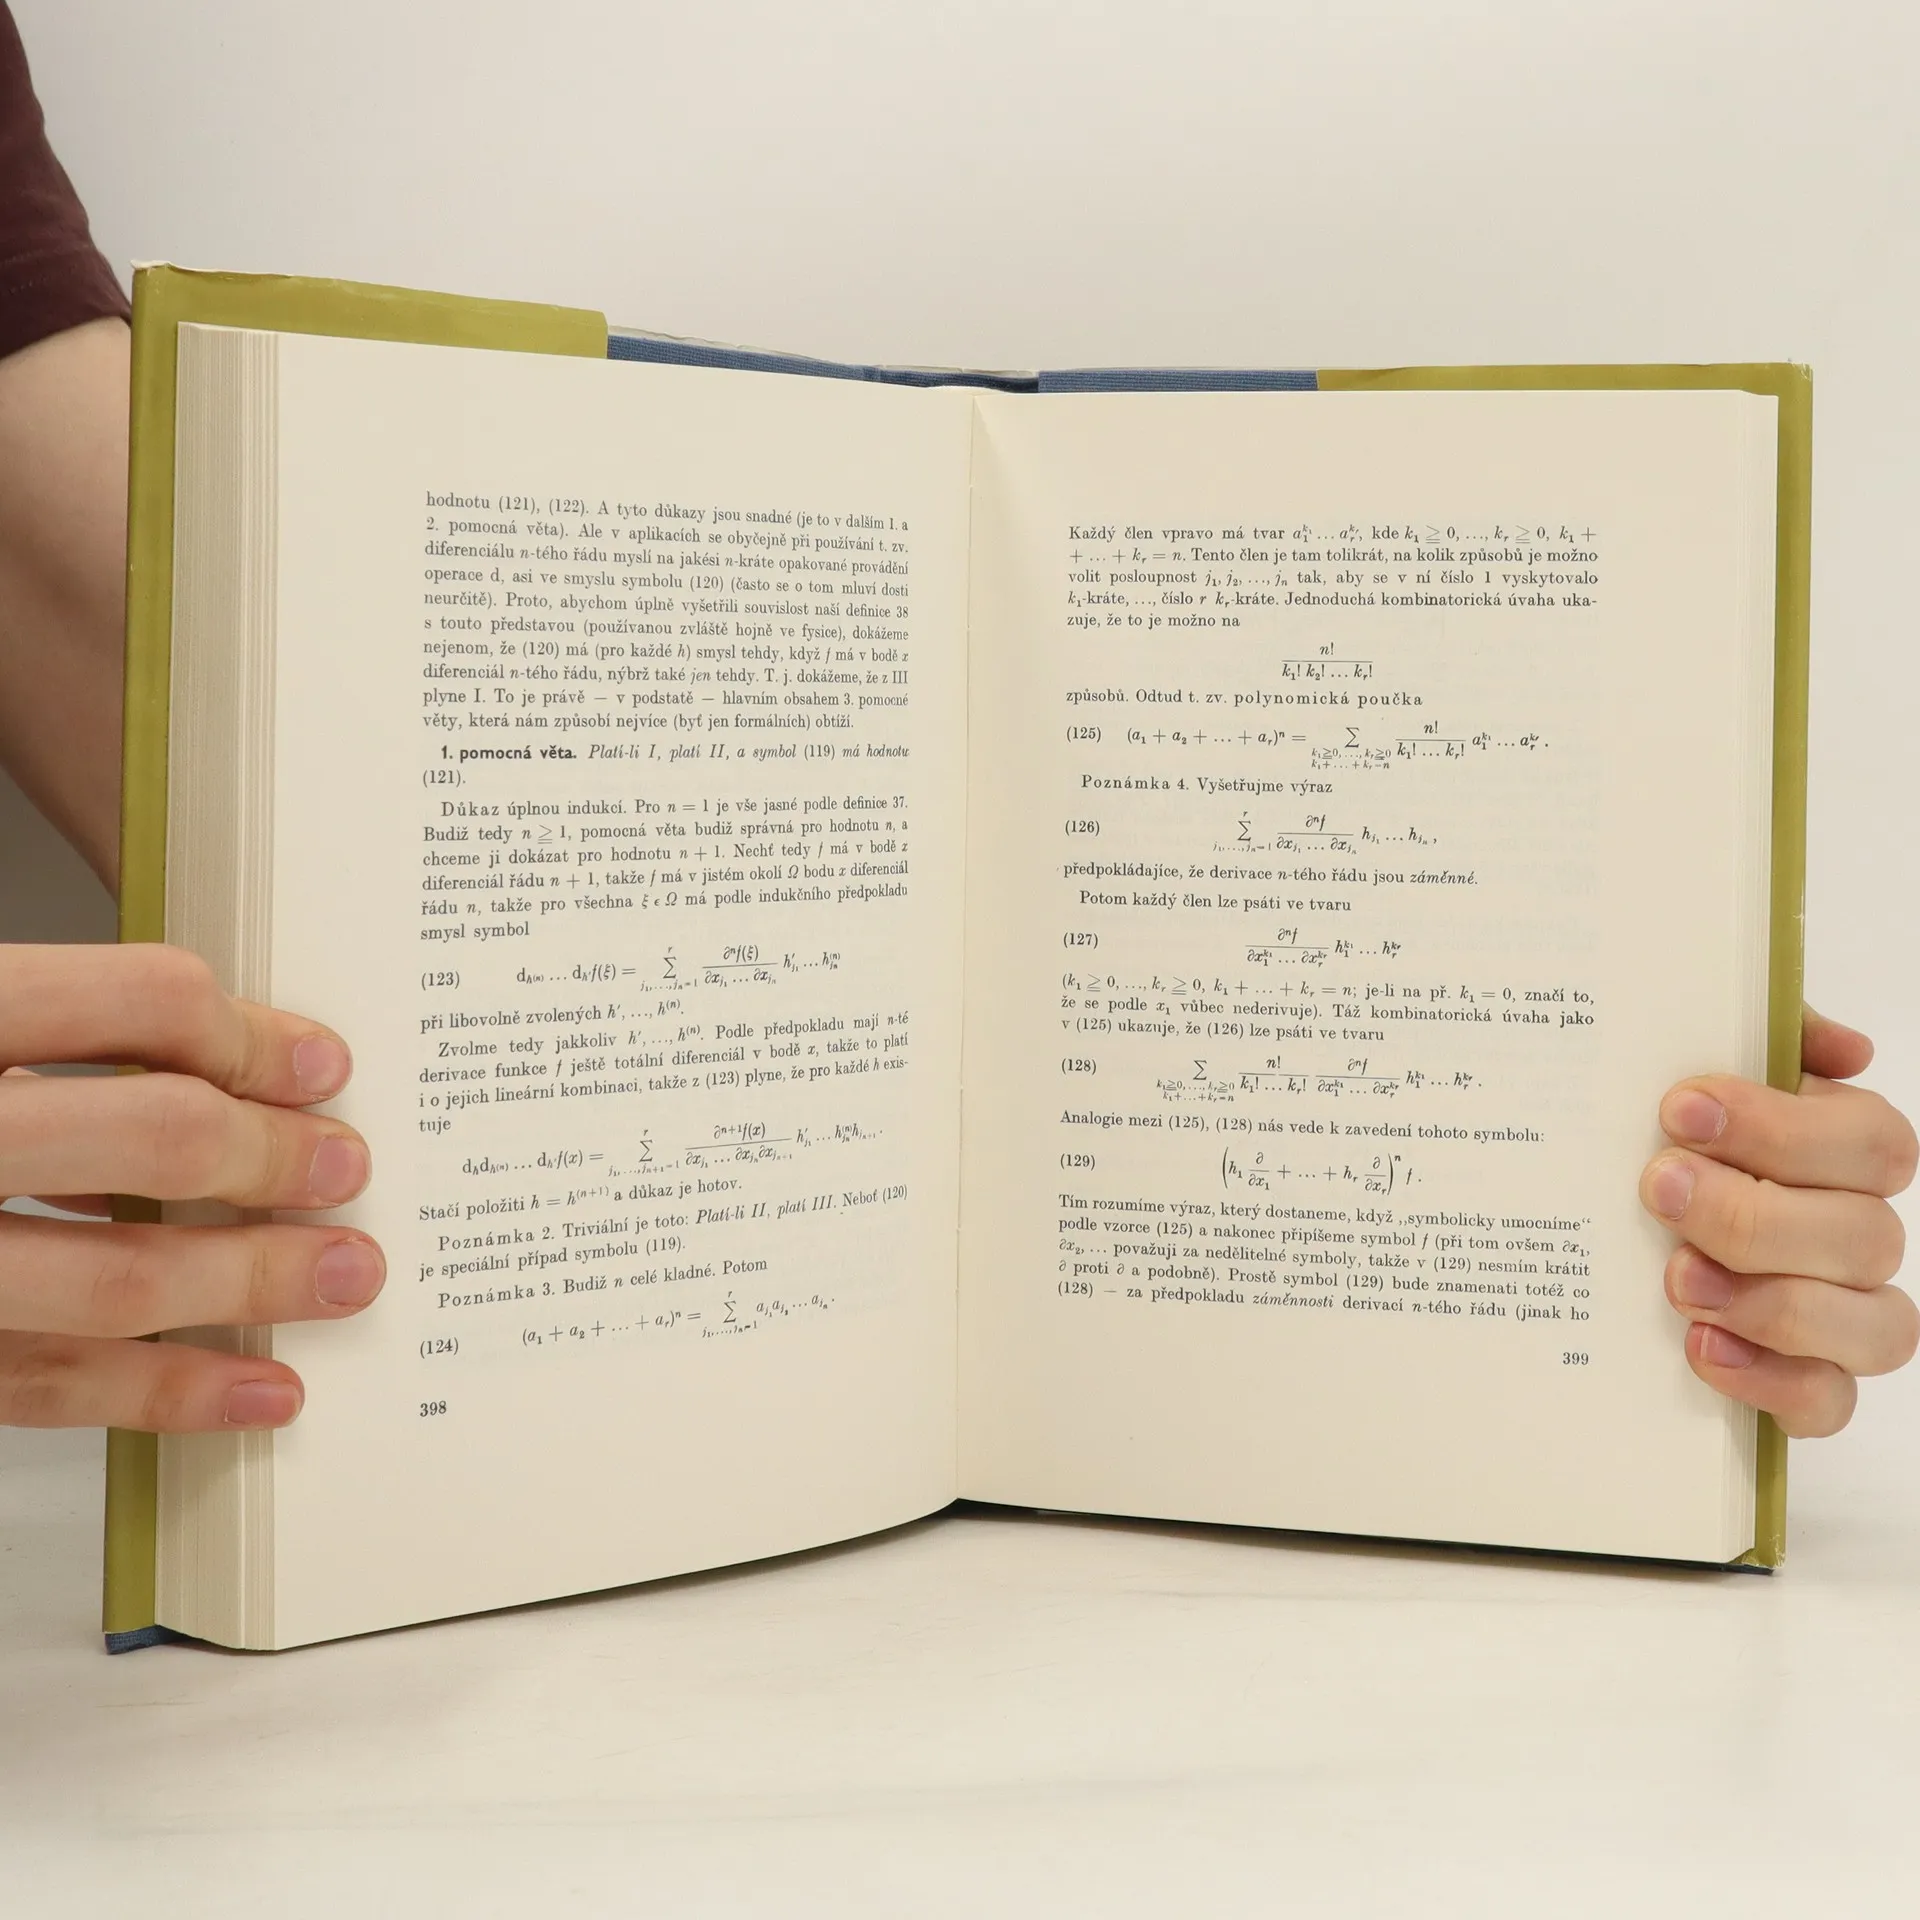 hodnotu (121), (122). A tyto důkazy jsou snadné (je to v dalším 1. a
2. pomocná věta). Ale v aplikacích se obyčejně při používání t. zv.
diferenciálu n-tého řádu myslí na jakési n-kráte opakované provádění
operace d, asi ve smyslu symbolu (120) (často se o tom mluví dosti
neurčitě). Proto, abychom úplně vyšetřili souvislost naší definice 38
s touto představou (používanou zvláště hojně ve fysice), dokážeme
nejenom, že (120) má (pro každé h) smysl tehdy, když f má v bodě x
diferenciál n-tého řádu, nýbrž také jen tehdy. T. j. dokážeme, že z III
plyne I. To je právě — v podstatě — hlavním obsahem 3. pomocné
věty, která nám způsobí nejvíce (byť jen formálních) obtíží.
1. pomocná věta. Platí-li I, platí II, a symbol (119) má hodnotu
(121).
Důkaz úplnou indukcí. Pro n = 1 je vše jasné podle definice 37.
Budiž tedy n ≧ 1, pomocná věta budiž správná pro hodnotu n, a
chceme ji dokázat pro hodnotu n + 1. Nechť tedy f má v bodě x
diferenciál řádu n + 1, takže f má v jistém okolí Ω bodu x diferenciál
řádu n, takže pro všechna ξ ϵ Ω má podle indukčního předpokladu
smysl symbol
(123) d_{h^{(n)}} … d_{h'} f(ξ) = ∑_{j_1,…,j_n=1}^{r} ∂^n f(ξ) / ∂x_{j_1} … ∂x_{j_n} h'_{j_1} … h^{(n)}_{j_n}
při libovolně zvolených h', …, h^{(n)}.
Zvolme tedy jakkoliv h', …, h^{(n)}. Podle předpokladu mají n-té
derivace funkce f ještě totální diferenciál v bodě x, takže to platí
i o jejich lineární kombinaci, takže z (123) plyne, že pro každé h exis-
tuje
d_h d_{h^{(n)}} … d_{h'} f(x) = ∑_{j_1,…,j_{n+1}=1}^{r} ∂^{n+1} f(x) / ∂x_{j_1} … ∂x_{j_n} ∂x_{j_{n+1}} h'_{j_1} … h^{(n)}_{j_n} h_{j_{n+1}}.
Stačí položiti h = h^{(n+1)} a důkaz je hotov.
Poznámka 2. Triviální je toto: Platí-li II, platí III. Neboť (120)
je speciální případ symbolu (119).
Poznámka 3. Budiž n celé kladné. Potom
(124) (a_1 + a_2 + … + a_r)^n = ∑_{j_1,…,j_n=1}^{r} a_{j_1} a_{j_2} … a_{j_n}.
398
Každý člen vpravo má tvar a_1^{k_1} … a_r^{k_r}, kde k_1 ≧ 0, …, k_r ≧ 0, k_1 +
+ … + k_r = n. Tento člen je tam tolikrát, na kolik způsobů je možno
volit posloupnost j_1, j_2, …, j_n tak, aby se v ní číslo 1 vyskytovalo
k_1-kráte, …, číslo r k_r-kráte. Jednoduchá kombinatorická úvaha uka-
zuje, že to je možno na
n! / k_1! k_2! … k_r!
způsobů. Odtud t. zv. polynomická poučka
(125) (a_1 + a_2 + … + a_r)^n = ∑_{k_1≧0,…,k_r≧0; k_1+…+k_r=n} n! / k_1! … k_r! a_1^{k_1} … a_r^{k_r}.
Poznámka 4. Vyšetřujme výraz
(126) ∑_{j_1,…,j_n=1}^{r} ∂^n f / ∂x_{j_1} … ∂x_{j_n} h_{j_1} … h_{j_n},
předpokládajíce, že derivace n-tého řádu jsou záměnné.
Potom každý člen lze psáti ve tvaru
(127) ∂^n f / ∂x_1^{k_1} … ∂x_r^{k_r} h_1^{k_1} … h_r^{k_r}
(k_1 ≧ 0, …, k_r ≧ 0, k_1 + … + k_r = n; je-li na př. k_1 = 0, značí to,
že se podle x_1 vůbec nederivuje). Táž kombinatorická úvaha jako
v (125) ukazuje, že (126) lze psáti ve tvaru
(128) ∑_{k_1≧0,…,k_r≧0; k_1+…+k_r=n} n! / k_1! … k_r! ∂^n f / ∂x_1^{k_1} … ∂x_r^{k_r} h_1^{k_1} … h_r^{k_r}.
Analogie mezi (125), (128) nás vede k zavedení tohoto symbolu:
(129) (h_1 ∂/∂x_1 + … + h_r ∂/∂x_r)^n f.
Tím rozumíme výraz, který dostaneme, když „symbolicky umocníme“
podle vzorce (125) a nakonec připíšeme symbol f (při tom ovšem ∂x_1,
∂x_2, … považuji za nedělitelné symboly, takže v (129) nesmím krátit
∂ proti ∂ a podobně). Prostě symbol (129) bude znamenati totéž co
(128) — za předpokladu záměnnosti derivací n-tého řádu (jinak ho
399